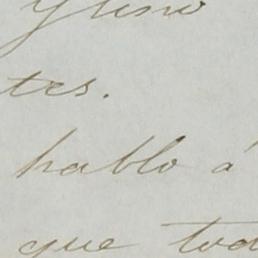 tes.
hablo á
que tod